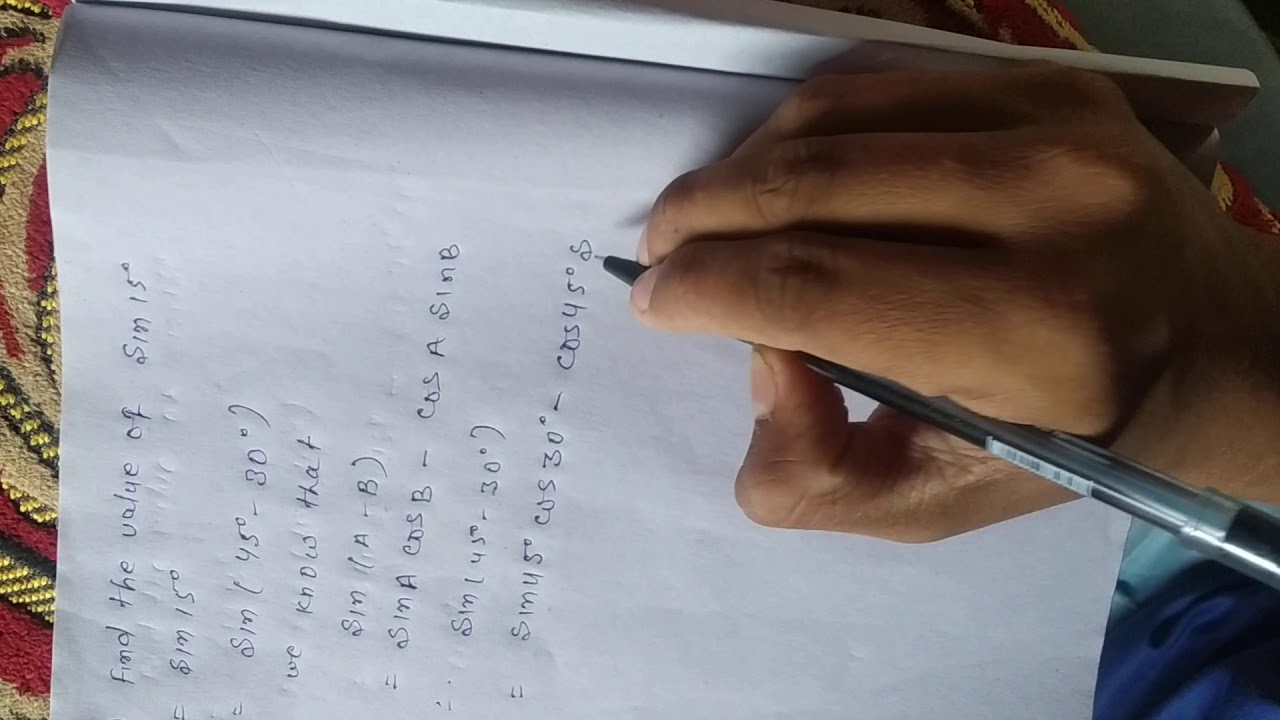 ) Find the value of sin 15°
= sin 15°
= sin (45° - 30°)
we know that
sin (A - B)
= sin A cos B - cos A sin B
∴ sin (45° - 30°)
= sin 45° cos 30° - cos 45° s